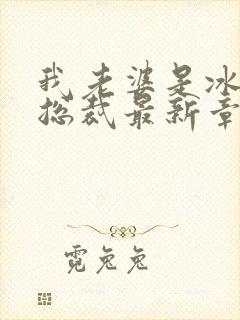 我老婆是冰
总裁最新章
霓兔兔